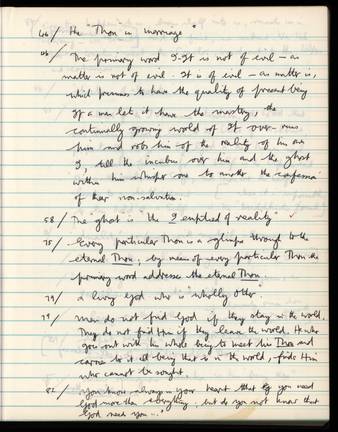 46/ The Thou in marriage"
46/ The primary word I-It is not of evil – as
matter is not of evil. It is of evil – as matter is,
which presumes to have the quality of present being
If a man let it have the mastery, the
continually growing world of It over-runs
him and robs him of the reality of his own
I, till the incubus over him and the ghost
within him whisper one to another the confession
of their non-salvation.
58/ The 'ghost' is "the I emptied of reality"
75/ Every particular Thou is a glimpse through to the
eternal Thou; by means of every particular Thou the
primary word addresses the eternal Thou.
79/ a living God who is "wholly other"
79/ Men do not find God if they stay in the world.
They do not find Him if they leave the world. He who
goes out with his whole being to meet his Thou and
carries to it all being that is in the world, finds Him
who cannot be sought.
82/ You know always in your heart that you need
God more than everything; but do you not know that
God needs you..."